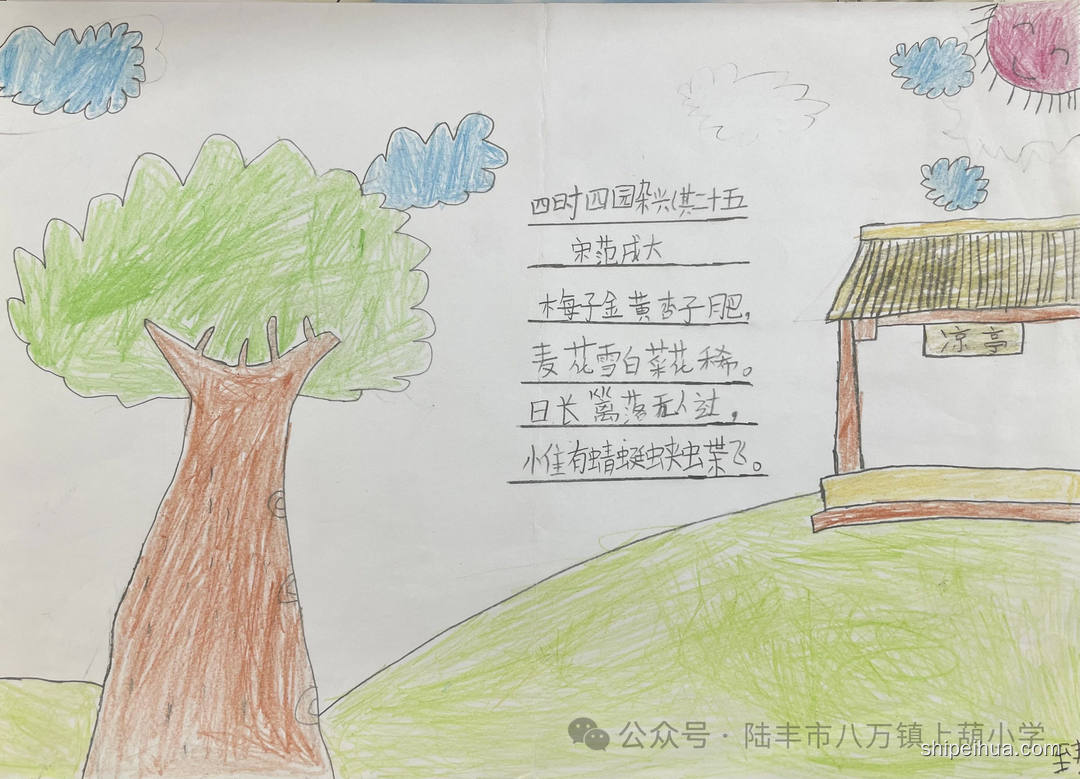 四时四园杂兴(其二十五
宋范成大
梅子金黄杏子肥,
麦花雪白菜花稀。
日长篱落无人过,
小隹有蜻蜓虫夹虫荣飞。
凉亭
公众号·陆丰市八万镇上葫小学
shipeihua.com